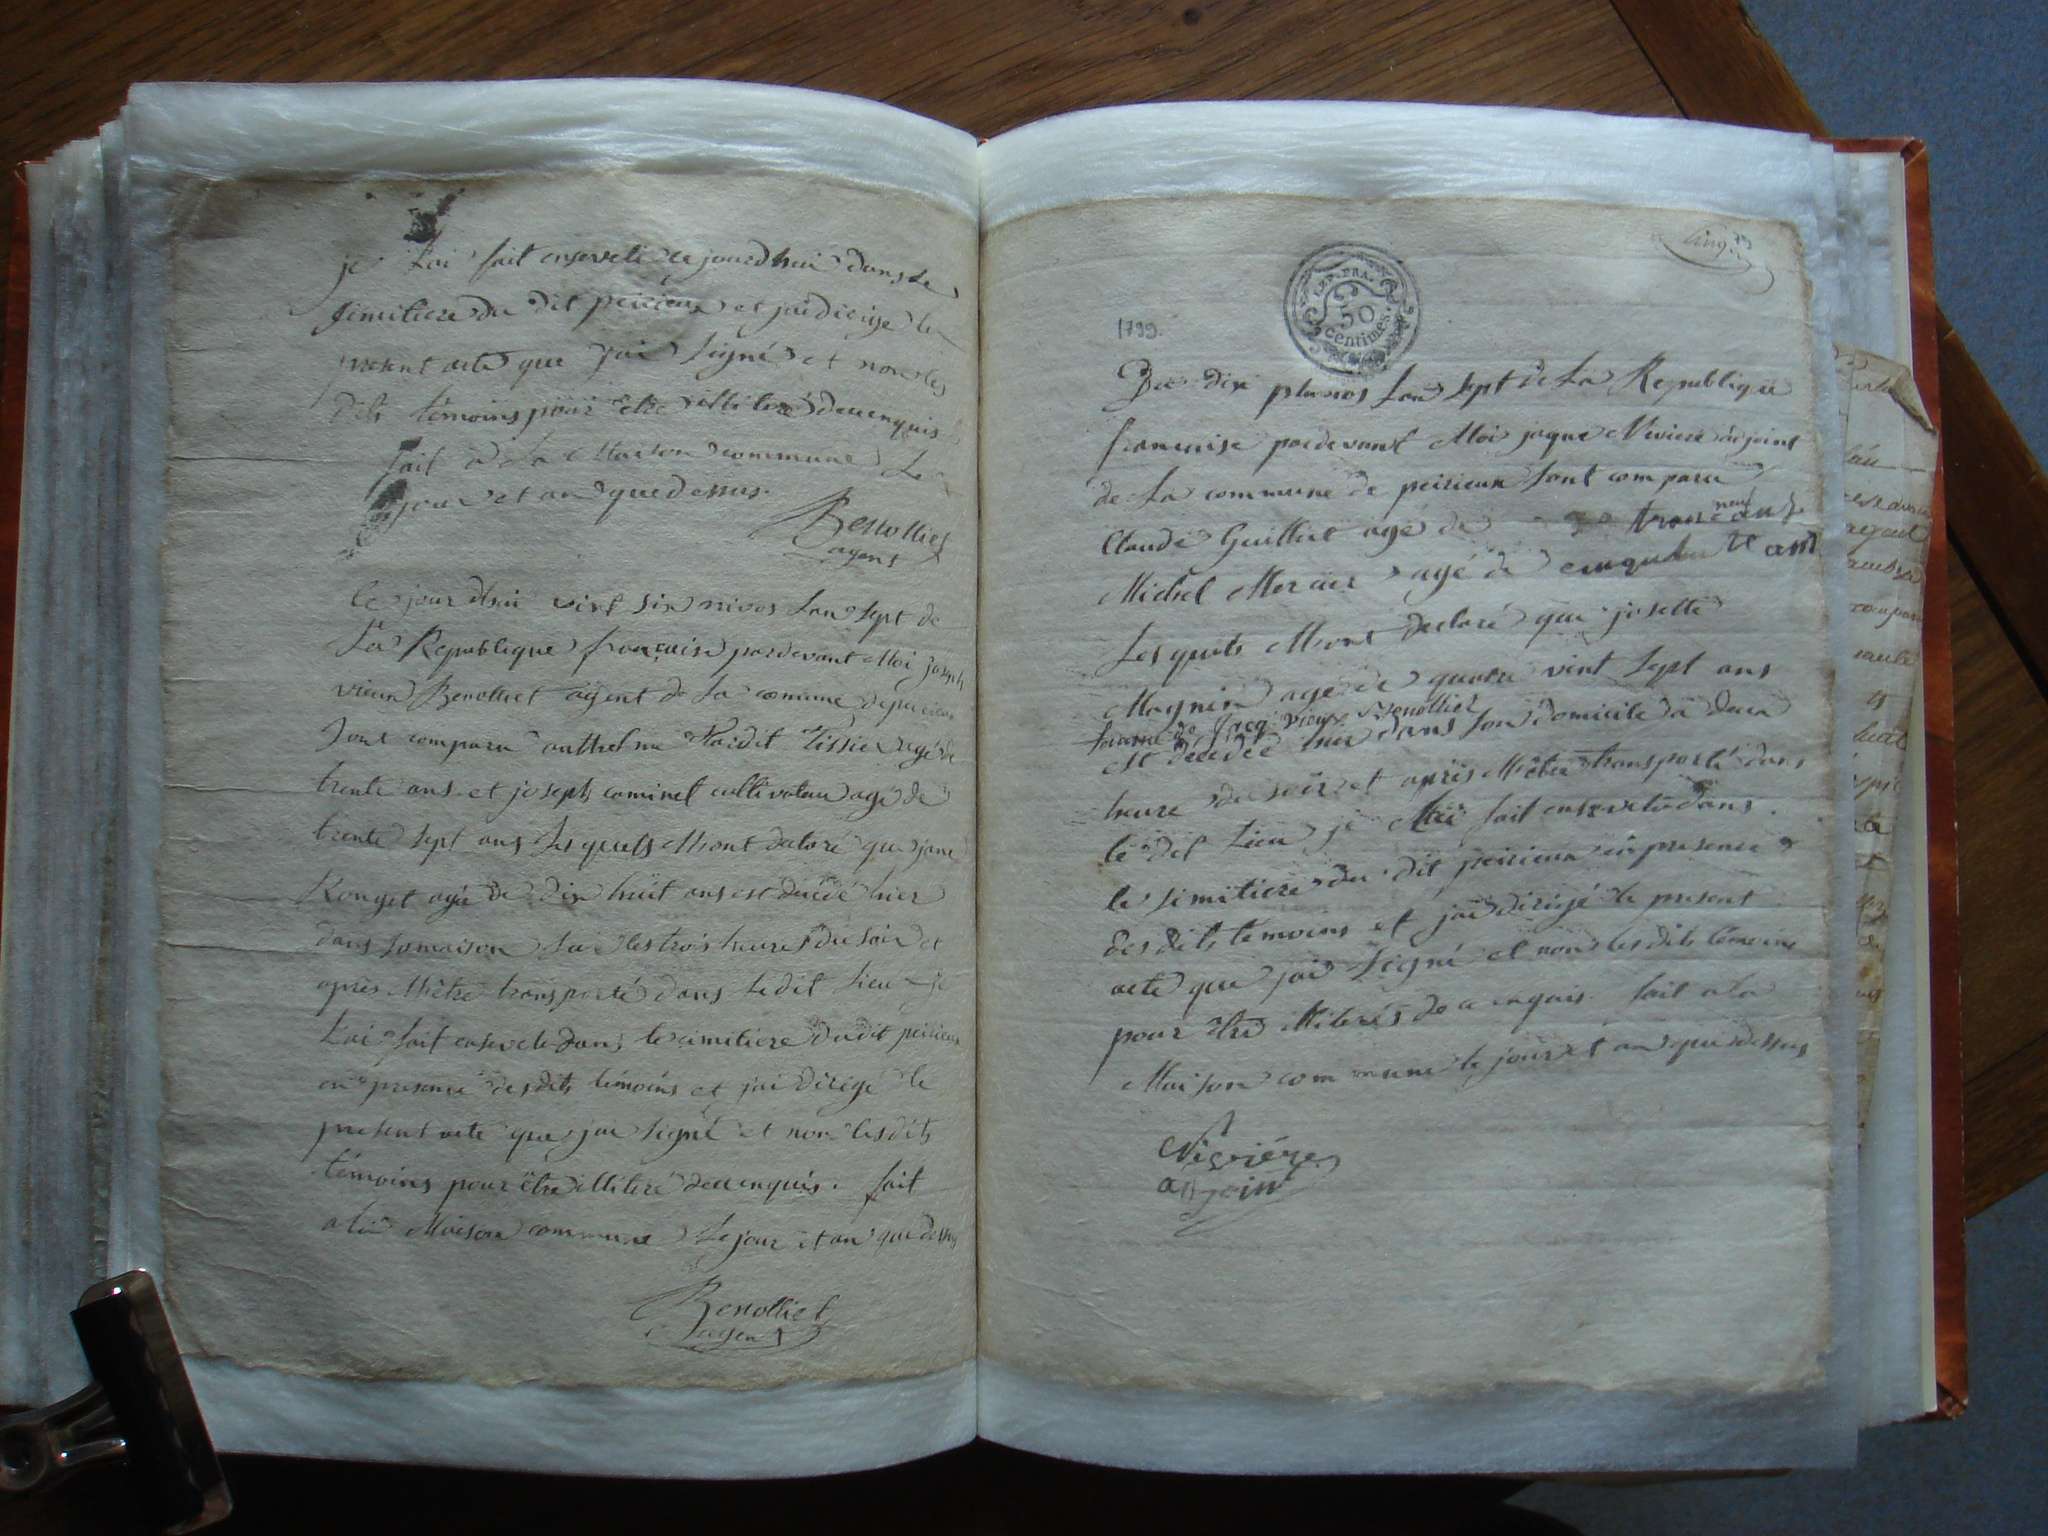 je lai fait enseveli ce jourd'hui dans le
simitiere du dit peirieux et jai dirige le
present acte que jai signé et non les
dits témoins pour etre illiteré de ce enquis
fait a la Maison commune le
jour et an que dessus.
Benolliet
agent
le jourdhui vint six nivos lan sept de
la Republique francaise pardevant Moi joseph
vieux Benolliet agent de la comune de peirieux
sont comparu anthelme dit Tissier agé de
trente ans et joseph cominet cultivateur agé de
trente sept ans lesquels Mont declaré que jane
Rouget agé de dix huit ans est decedé hier
dans sa maison sur les trois heures du soir et
après M'être transporté dans le dit lieu je
lai fait enseveli dans le cimitiere du dit peirieux
en presence des dits témoins et jai dirigé le
present acte que jai signé et non les dits
témoins pour être illiteré de ce enquis. fait
a la Maison commune le jour et an que dessus
Benolliet
agent
cinq
REP. FRA.
50
centimes.
1799.
Du dix pluvios lan sept de la Republique
francaise pardevant Moi jaque Niviere adjoint
de la commune de peirieux sont comparu
Claude Guilliet agé de trante neuf ans
Michel Meraux agé de cinquante ans
Lesquels Mont declaré que josette
Magnin age de quatre vint sept ans
femme de Jacq. vieux Benolliet
est decedée hier dans son domicile a deux
heure du soir et après M'être transporté dans
le dit lieu je lai fait enseveli dans
le simitiere du dit peirieux en presence
des dits temoins et jai dirigé le present
acte que jai signé et non les dits témoins
pour être illiterés de ce enquis. fait a la
Maison commune le jour et an que dessus
Nivière
adjoint